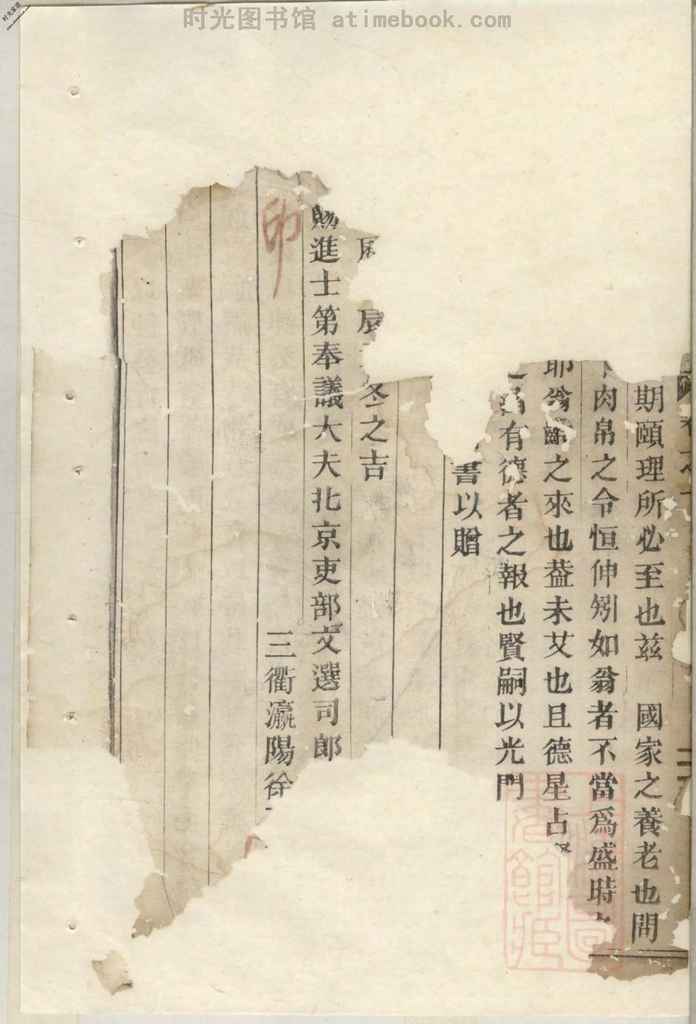 时光图书馆 atimebook.com
时光图书馆
期頤理所必至也茲 國家之養老也問
肉帛之令恒伸矧如翁者不當為盛時
耶翁齡之來也葢未艾也且德星占
有德者之報也賢嗣以光門
書以贈
辰 冬之吉
賜進士第奉議大夫北京吏部文選司郎
三衢瀛陽徐
印